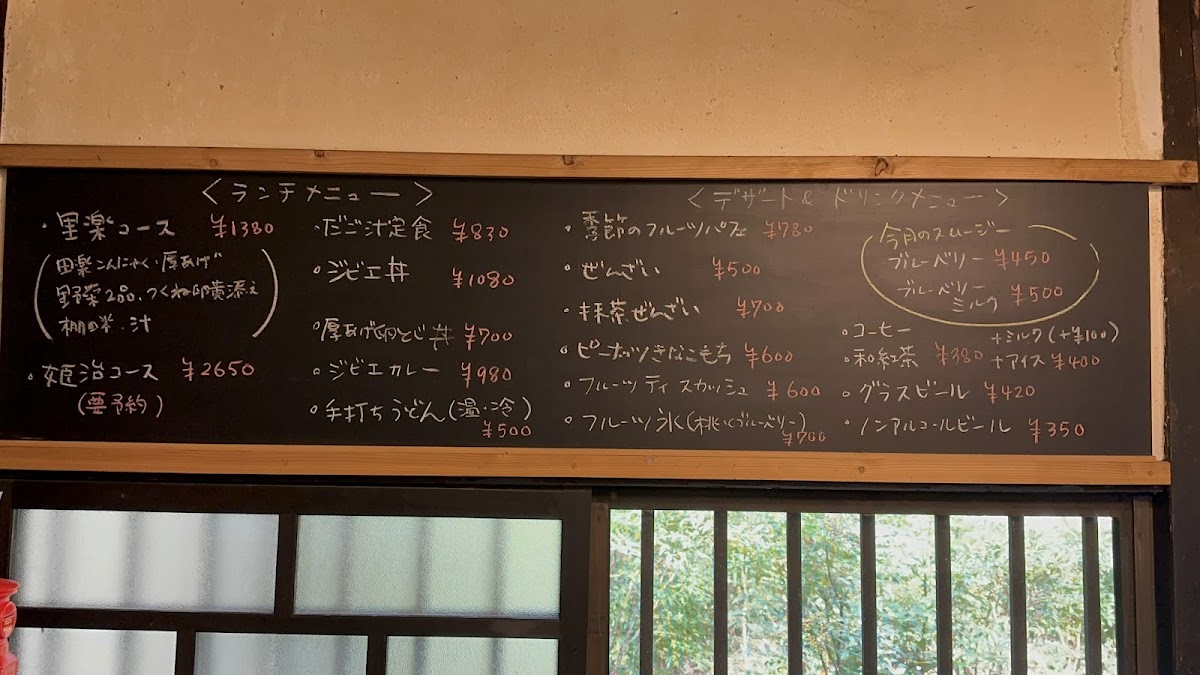 ＜ランチメニュー＞
・里楽コース ¥1380
(田楽こんにゃく・厚あげ
野菜2品・つくね卵黄添え
棚田米・汁)
・姫治コース ¥2650
(要予約)
・だご汁定食 ¥830
・ジビエ丼 ¥1080
・厚あげ卵とじ丼 ¥700
・ジビエカレー ¥980
・手打ちうどん(温・冷)
¥500
＜デザート&ドリンクメニュー＞
・季節のフルーツパフェ ¥780
・ぜんざい ¥500
・抹茶ぜんざい ¥700
・ピーナッツきなこもち ¥600
・フルーツティスカッシュ ¥600
・フルーツ氷(桃・ブルーベリー)
¥700
今月のスムージー
ブルーベリー ¥450
ブルーベリー
ミルク ¥500
・コーヒー +ミルク(+¥100)
・和紅茶 ¥380 +アイス ¥400
・グラスビール ¥420
・ノンアルコールビール ¥350